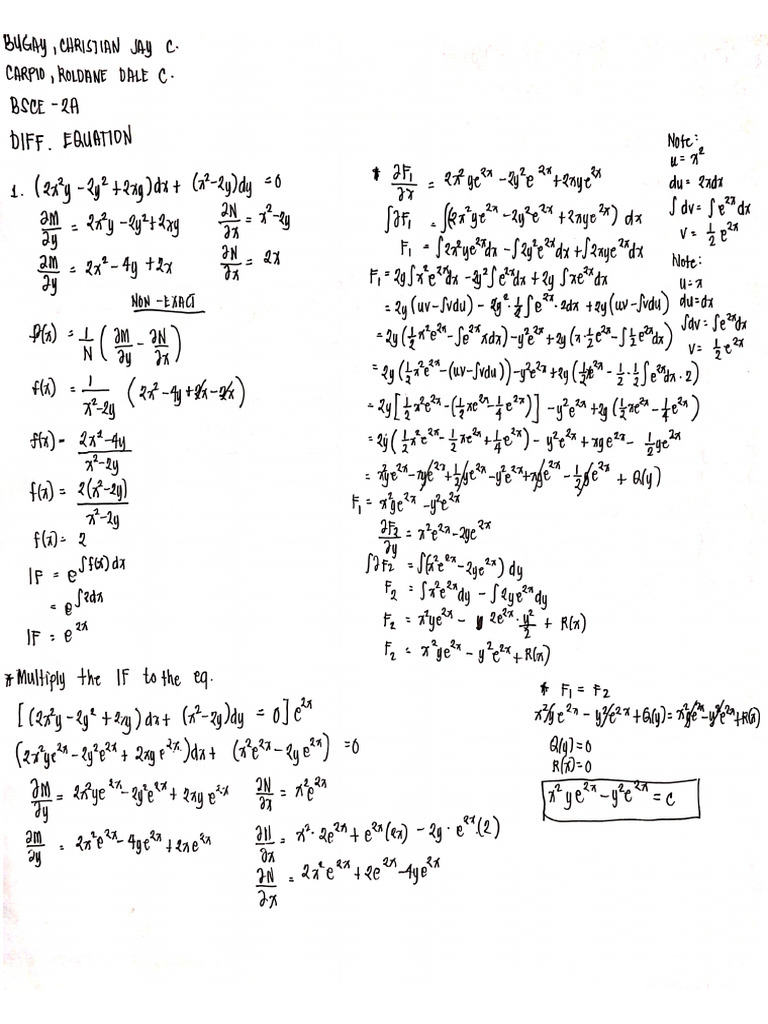 BUGAY, CHRISTIAN JAY C.
CARPIO, ROLDANE DALE C.
BSCE - 2A
DIFF. EQUATION
1. (2x²y - 2y² + 2xy)dx + (x² - 2y)dy = 0
∂M/∂y = 2x²y - 2y² + 2xy   ∂N/∂x = x² - 2y
∂M/∂y = 2x² - 4y + 2x   ∂N/∂x = 2x
NON - EXACT
f(x) = 1/N (∂M/∂y - ∂N/∂x)
f(x) = 1/(x² - 2y) (2x² - 4y + 2x - 2x)
f(x) = (2x² - 4y)/(x² - 2y)
f(x) = 2(x² - 2y)/(x² - 2y)
f(x) = 2
IF = e^∫f(x)dx
= e^∫2dx
IF = e^2x
* Multiply the IF to the eq.
[(2x²y - 2y² + 2xy)dx + (x² - 2y)dy = 0] e^2x
(2x²ye^2x - 2y²e^2x + 2xye^2x)dx + (x²e^2x - 2ye^2x) = 0
∂M/∂y = 2x²ye^2x - 2y²e^2x + 2xye^2x   ∂N/∂x = x²e^2x
∂M/∂y = 2x²e^2x - 4ye^2x + 2xe^2x   ∂N/∂x = x² · 2e^2x + e^2x(2x) - 2y · e^2x(2)
∂N/∂x = 2x²e^2x + 2e^2x - 4ye^2x
* ∂F₁/∂x = 2x²ye^2x - 2y²e^2x + 2xye^2x
∫∂F₁ = ∫(2x²ye^2x - 2y²e^2x + 2xye^2x) dx
F₁ = ∫2x²ye^2xdx - ∫2y²e^2xdx + ∫2xye^2xdx
F₁ = 2y∫x²e^2xdx - 2y²∫e^2xdx + 2y∫xe^2xdx
= 2y(uv - ∫vdu) - 2y² · 1/2 ∫e^2x · 2dx + 2y(uv - ∫vdu)
= 2y(1/2 x²e^2x - ∫e^2x xdx) - y²e^2x + 2y(x · 1/2 e^2x - ∫1/2 e^2xdx)
= 2y(1/2 x²e^2x - (uv - ∫vdu)) - y²e^2x + 2y(1/2 xe^2x - 1/2 · 1/2 ∫e^2xdx · 2)
= 2y[1/2 x²e^2x - (1/2 xe^2x - 1/4 e^2x)] - y²e^2x + 2y(1/2 xe^2x - 1/4 e^2x)
= 2y(1/2 x²e^2x - 1/2 xe^2x + 1/4 e^2x) - y²e^2x + xye^2x - 1/2 ye^2x
= x²ye^2x - xye^2x + 1/2 ye^2x - y²e^2x + xye^2x - 1/2 ye^2x + Q(y)
F₁ = x²ye^2x - y²e^2x
∂F₂/∂y = x²e^2x - 2ye^2x
∫∂F₂ = ∫(x²e^2x - 2ye^2x) dy
F₂ = ∫x²e^2xdy - ∫2ye^2xdy
F₂ = x²ye^2x - 2e^2x · y²/2 + R(x)
F₂ = x²ye^2x - y²e^2x + R(x)
Note:
u = x²
du = 2xdx
∫dv = ∫e^2xdx
v = 1/2 e^2x
Note:
u = x
du = dx
∫dv = ∫e^2xdx
v = 1/2 e^2x
* F₁ = F₂
x²ye^2x - y²e^2x + Q(y) = x²ye^2x - y²e^2x + R(x)
Q(y) = 0
R(x) = 0
x²ye^2x - y²e^2x = c